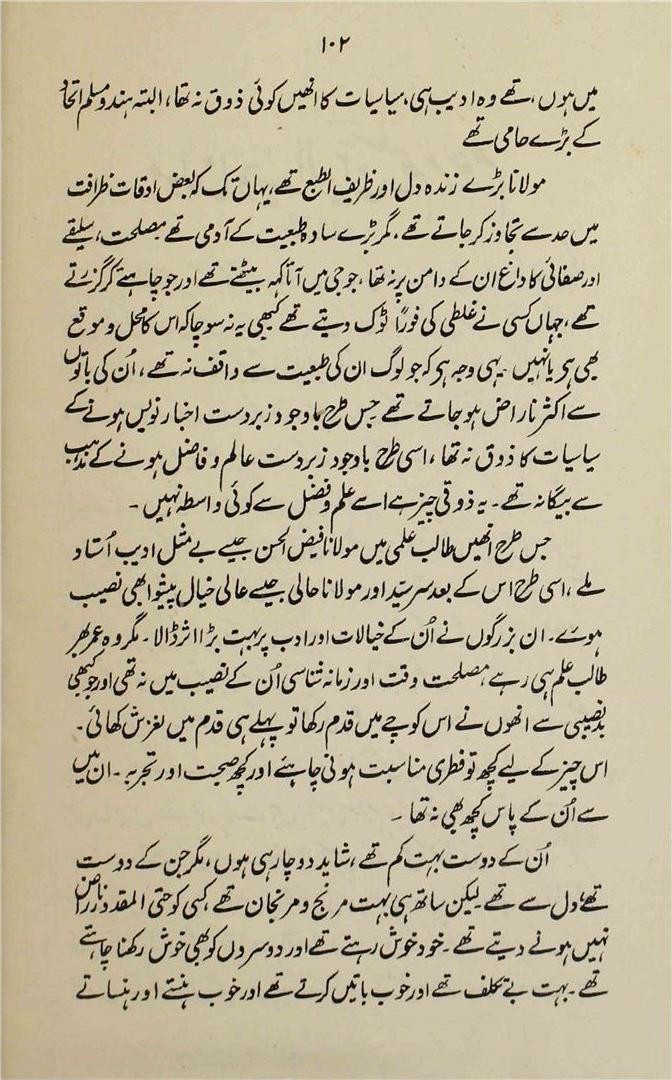 ۱۰۲
میں ہوں، تھے وہ ادیب ہی، سیاسیات کا انھیں کوئی ذوق نہ تھا، البتہ ہندو مسلم اتحاد
کے بڑے حامی تھے
مولانا بڑے زندہ دل اور ظریف الطبع تھے، یہاں تک کہ بعض اوقات ظرافت
میں حد سے تجاوز کر جاتے تھے، مگر بڑے سادہ طبیعت کے آدمی تھے مصلحت، سلیقے
اور صفائی کا داغ ان کے دامن پر نہ تھا، جو جی میں آتا کہہ بیٹھتے تھے اور جو چاہتے کر گزرتے
تھے، جہاں کسی نے غلطی کی فوراً ٹوک دیتے تھے کبھی یہ نہ سوچا کہ اس کا محل و موقع
بھی ہی یا نہیں۔ یہی وجہ ہی کہ جو لوگ ان کی طبیعت سے واقف نہ تھے، اُن کی باتوں
سے اکثر ناراض ہو جاتے تھے جس طرح باوجود زبردست اخبار نویس ہونے کے
سیاسیات کا ذوق نہ تھا، اسی طرح باوجود زبردست عالم و فاضل ہونے کے مذہب
سے بیگانہ تھے۔ یہ ذوقی چیز ہے اسے علم و فضل سے کوئی واسطہ نہیں۔
جس طرح انھیں طالب علمی میں مولانا فیض الحسن جیسے بے مثل ادیب اُستاد
ملے، اسی طرح اس کے بعد سر سیّد اور مولانا حالی جیسے عالی خیال پیشوا بھی نصیب
ہوے۔ ان بزرگوں نے اُن کے خیالات اور ادب پر بہت بڑا اثر ڈالا۔ مگر وہ عمر بھر
طالب علم ہی رہے مصلحت وقت اور زمانہ شناسی اُن کے نصیب میں نہ تھی اور جو کبھی
بدنصیبی سے انھوں نے اس کوچے میں قدم رکھا تو پہلے ہی قدم میں لغزش کھائی۔
اس چیز کے لیے کچھ تو فطری مناسبت ہونی چاہئے اور کچھ صحبت اور تجربہ۔ ان میں
سے اُن کے پاس کچھ بھی نہ تھا۔
اُن کے دوست بہت کم تھے، شاید دو چار ہی ہوں، مگر جن کے دوست
تھے دل سے تھے لیکن ساتھ ہی بہت مرنج و مرنجان تھے کسی کو حتی المقدور ناراض
نہیں ہونے دیتے تھے۔ خود خوش رہتے تھے اور دوسروں کو بھی خوش رکھنا چاہتے
تھے۔ بہت بے تکلف تھے اور خوب باتیں کرتے تھے اور خوب ہنستے اور ہنساتے